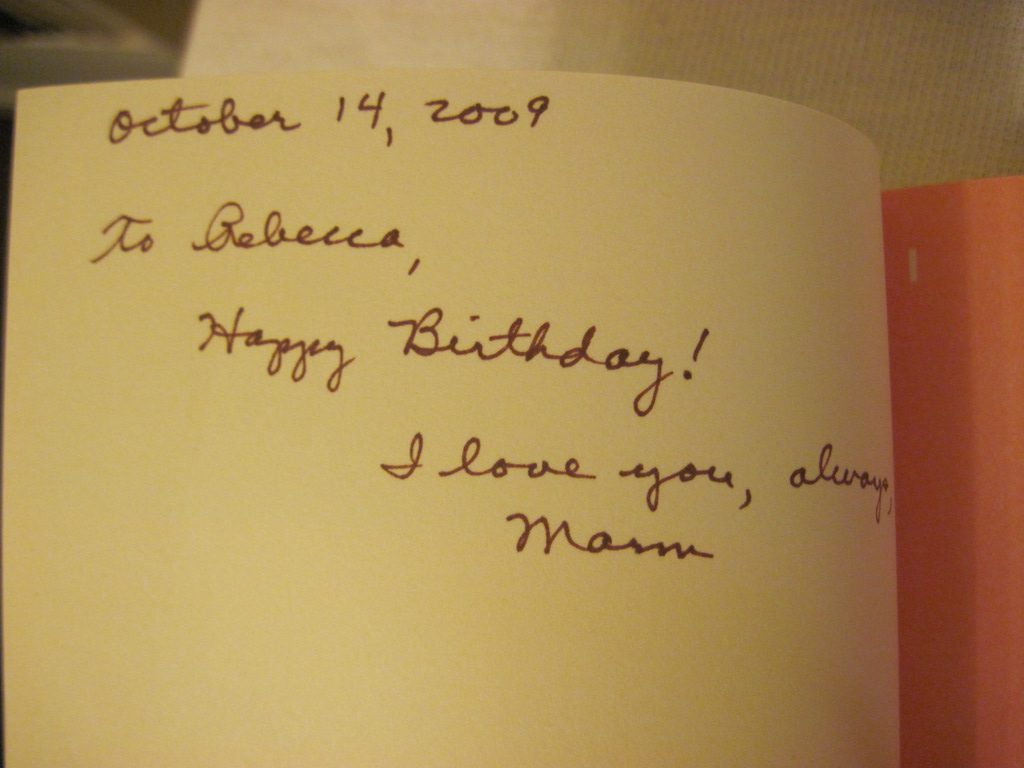 October 14, 2009
To Rebecca,
Happy Birthday!
I love you, always,
Marm